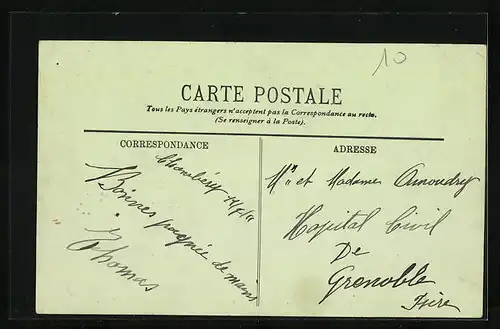 10
CARTE POSTALE
Tous les Pays étrangers n'acceptent pas la Correspondance au recto.
(Se renseigner à la Poste).
CORRESPONDANCE
Chambéry
Bonnes poignée de mains
Thomas
ADRESSE
et Madame Amoudry
Hopital Civil
De
Grenoble
Isère